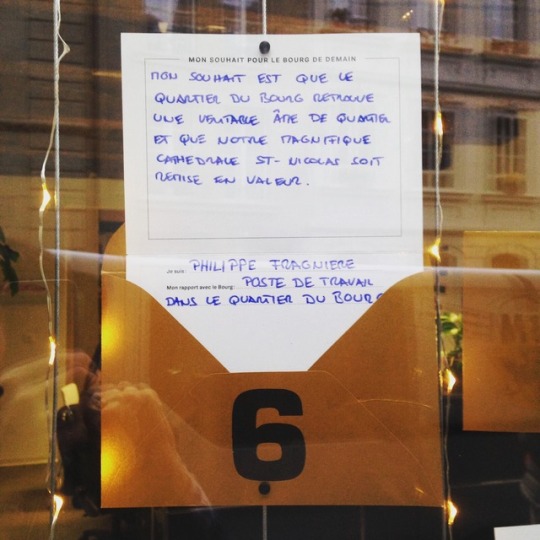 MON SOUHAIT POUR LE BOURG DE DEMAIN
MON SOUHAIT EST QUE LE
QUARTIER DU BOURG RETROUVE
UNE VERITABLE ÂME DE QUARTIER
ET QUE NOTRE MAGNIFIQUE
CATHEDRALE ST-NICOLAS SOIT
REMISE EN VALEUR.
Je suis: PHILIPPE FRAGNIERE
Mon rapport avec le Bourg: POSTE DE TRAVAIL
DANS LE QUARTIER DU BOURG
6